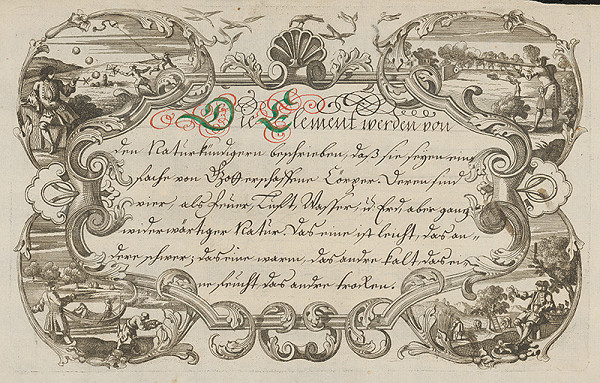 Die Element werden von
den Naturkündigern beschrieben, daß sie seÿen ein=
fache von Gott erschaffene Cörper. Deren sind
vier, als Feüer, Lufft, Wasser, ŭ Erd, aber gantz
widerwärtiger Natur. Das eine ist leicht, das an=
dere schwer; das eine warm, das andre kalt, das ei=
ne feücht das andre trocken.